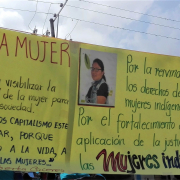 A MUJER
visibilizar la
de la mujer para
sociedad.
OS CAPITALISMO ESTE
AR, PORQUE
O A LA VIDA, A
LAS MUJERES"
Por la reivin
los derechos de
mujeres indígen
Por el fortalecimiento
aplicación de la justi
las Mujeres ind